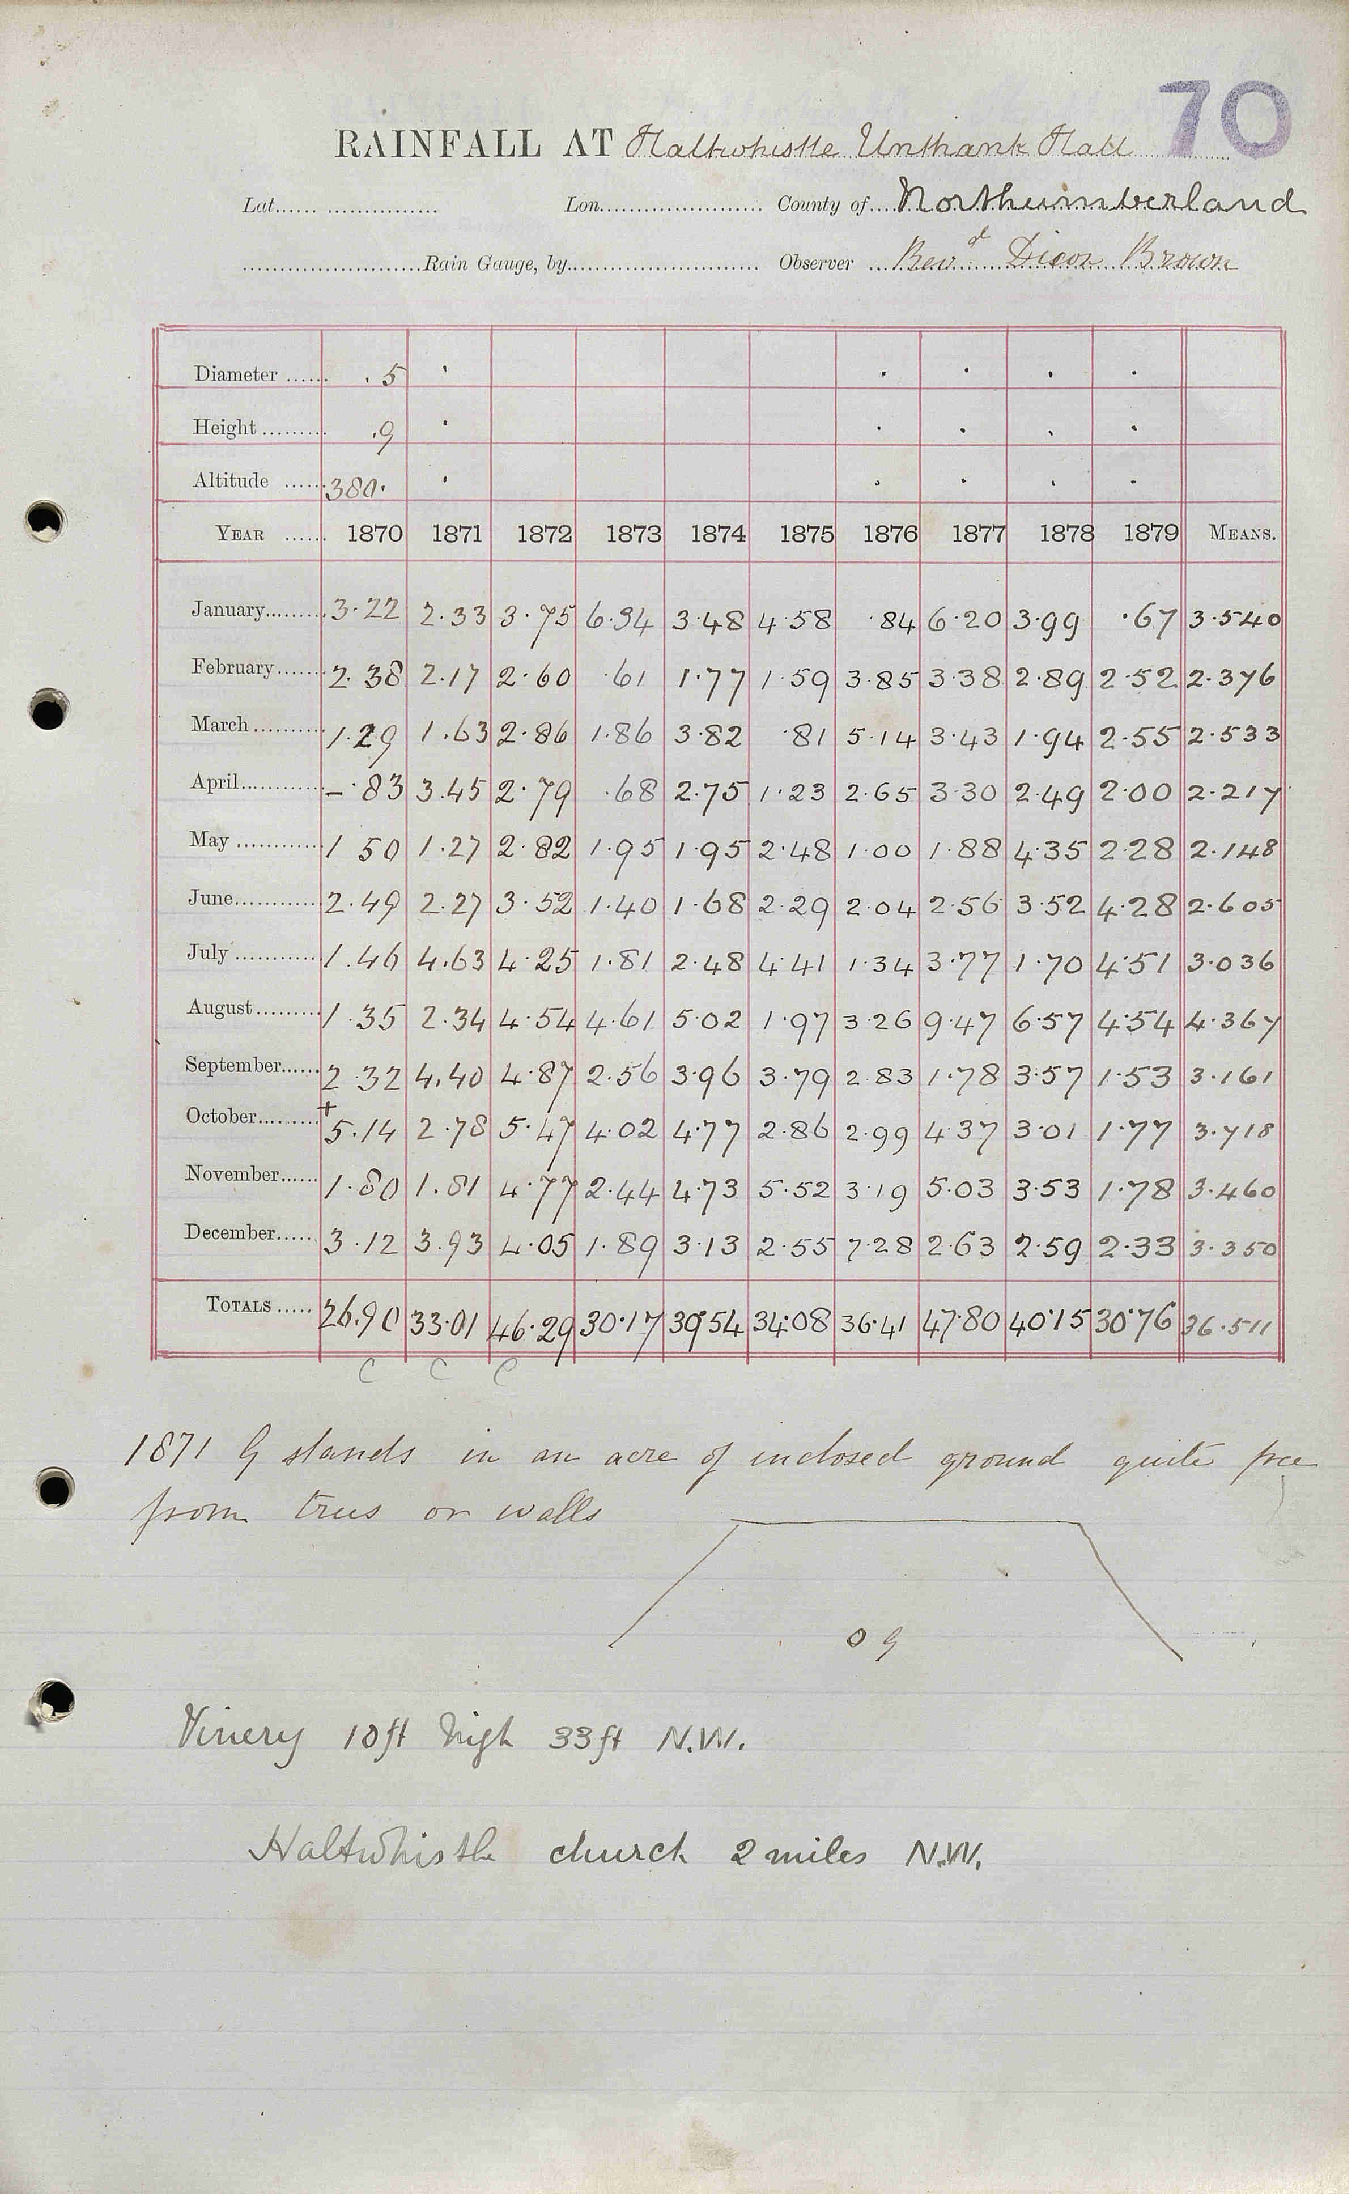 70
RAINFALL AT Haltwhistle Unthank Hall
Lat. Lon. County of Northumberland
Rain Gauge, by Observer Revd Dixon Brown
Diameter .5 . . . . .
Height .9 . . . . .
Altitude 380. . . . . .
YEAR 1870 1871 1872 1873 1874 1875 1876 1877 1878 1879 MEANS.
January 3.22 2.33 3.75 6.34 3.48 4.58 .84 6.20 3.99 .67 3.540
February 2.38 2.17 2.60 .61 1.77 1.59 3.85 3.38 2.89 2.52 2.376
March 1.29 1.63 2.86 1.86 3.82 .81 5.14 3.43 1.94 2.55 2.533
April -.83 3.45 2.79 .68 2.75 1.23 2.65 3.30 2.49 2.00 2.217
May 1 50 1.27 2.82 1.95 1.95 2.48 1.00 1.88 4.35 2.28 2.148
June 2.49 2.27 3.52 1.40 1.68 2.29 2.04 2.56 3.52 4.28 2.605
July 1.46 4.63 4.25 1.81 2.48 4.41 1.34 3.77 1.70 4.51 3.036
August 1.35 2.34 4.54 4.61 5.02 1.97 3.26 9.47 6.57 4.54 4.367
September 2.32 4.40 4.87 2.56 3.96 3.79 2.83 1.78 3.57 1.53 3.161
October +5.14 2.78 5.47 4.02 4.77 2.86 2.99 4.37 3.01 1.77 3.718
November 1.80 1.81 4.77 2.44 4.73 5.52 3.19 5.03 3.53 1.78 3.460
December 3.12 3.93 4.05 1.89 3.13 2.55 7.28 2.63 2.59 2.33 3.350
TOTALS 26.90 33.01 46.29 30.17 39.54 34.08 36.41 47.80 40.15 30.76 36.511
C C C
1871 G stands in an acre of inclosed ground quite free
from trees or walls
O G
Vinery 10ft high 33ft N.W.
Haltwhistle church 2 miles N.W.